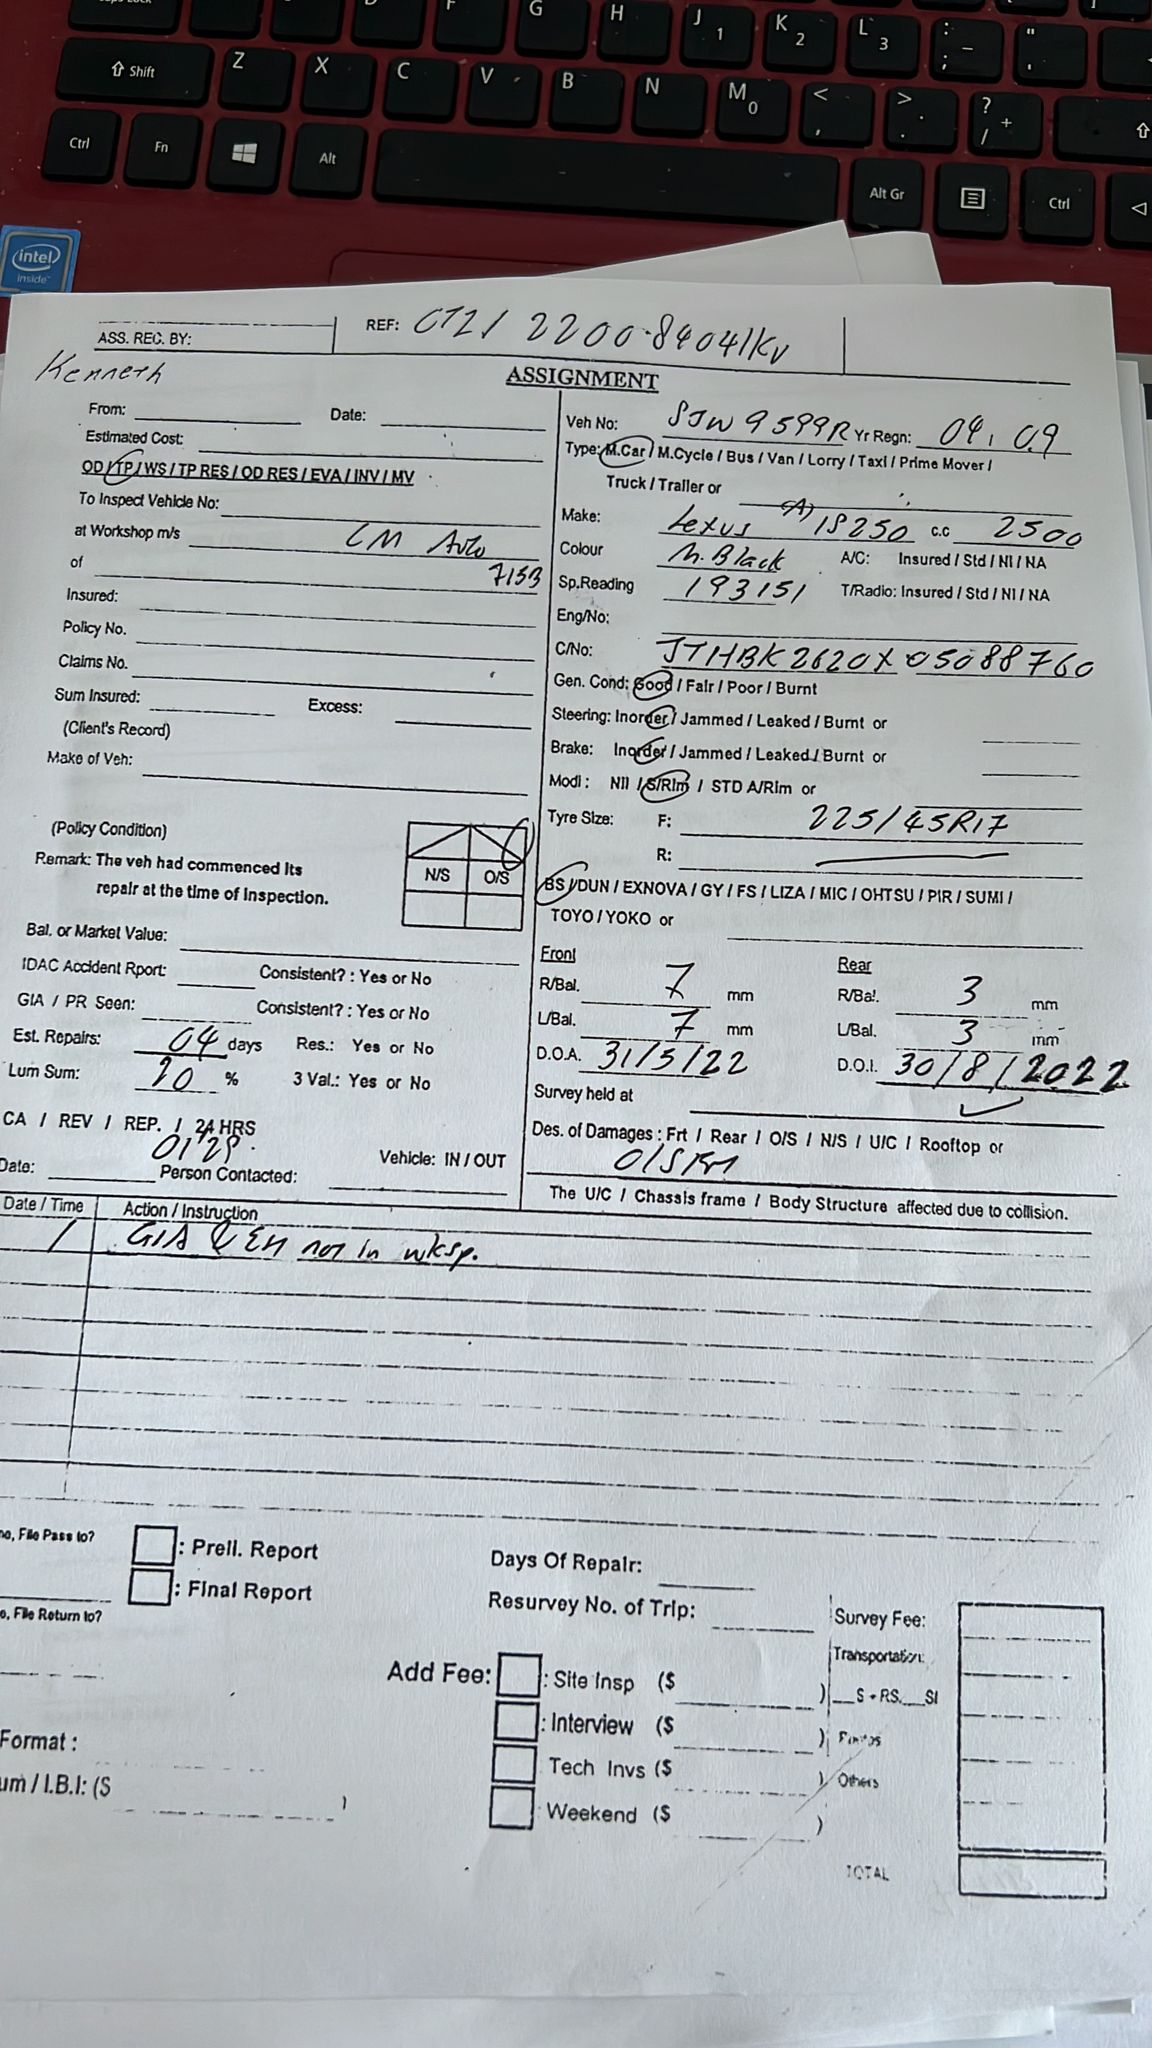 G H J 1 K 2 L 3 : ; - " '
Shift Z X C V B N M 0 < , > . ? / +
Ctrl Fn Alt Alt Gr Ctrl
intel
inside
ASS. REC. BY:
REF: CT2/ 2200-8404/KV
Kenneth
ASSIGNMENT
From: Date:
Estimated Cost:
OD / TP / WS / TP RES / OD RES / EVA / INV / MV
To Inspect Vehicle No:
at Workshop m/s LM Auto
of 7153
Insured:
Policy No.
Claims No.
Sum Insured: Excess:
(Client's Record)
Make of Veh:
(Policy Condition)
Remark: The veh had commenced its
repair at the time of inspection.
N/S O/S
Bal. or Market Value:
IDAC Accident Rport: Consistent? : Yes or No
GIA / PR Seen: Consistent? : Yes or No
Est. Repairs: 04 days Res.: Yes or No
Lum Sum: 20 % 3 Val.: Yes or No
CA / REV / REP. / 24 HRS
01/29.
Date: Person Contacted: Vehicle: IN / OUT
Veh No: SJW 9599R Yr Regn: 04, 09
Type: M.Car / M.Cycle / Bus / Van / Lorry / Taxi / Prime Mover /
Truck / Traller or
Make: Lexus (A) IS250 c.c 2500
Colour M. Black A/C: Insured / Std / NI / NA
Sp.Reading 193151 T/Radio: Insured / Std / NI / NA
Eng/No:
C/No: JTHBK2620X05088760
Gen. Cond: Good / Fair / Poor / Burnt
Steering: Inorder / Jammed / Leaked / Burnt or
Brake: Inorder / Jammed / Leaked / Burnt or
Modi: Nil / S/Rim / STD A/Rim or
Tyre Size: F: 225/45R17
R:
BS / DUN / EXNOVA / GY / FS / LIZA / MIC / OHTSU / PIR / SUMI /
TOYO / YOKO or
Front Rear
R/Bal. 7 mm R/Bal. 3 mm
L/Bal. 7 mm L/Bal. 3 mm
D.O.A. 31/5/22 D.O.I. 30/8/2022
Survey held at
Des. of Damages : Frt / Rear / O/S / N/S / U/C / Rooftop or
O/S
The U/C / Chassis frame / Body Structure affected due to collision.
Date / Time Action / Instruction
/ GIA & EH not in wksp.
File Pass to?
: Prell. Report
: Final Report
File Return to?
Days Of Repair:
Resurvey No. of Trip:
Survey Fee:
Transportation:
Add Fee: : Site Insp ($ ) S + RS. SI
: Interview ($ )
Tech Invs ($ ) Others
Weekend ($ )
Format :
um / I.B.I: ($ )
TOTAL